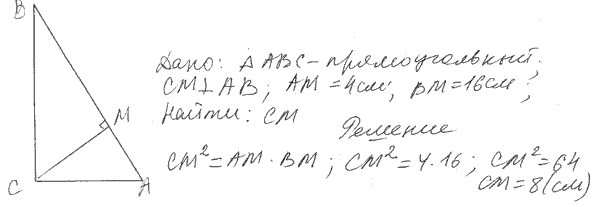 B
Дано: △ABC - прямоугольный.
CM⊥AB; AM=4см; BM=16см;
M Найти: CM
Решение
CM²=AM·BM; CM²=4·16; CM²=64
C A CM=8(см)